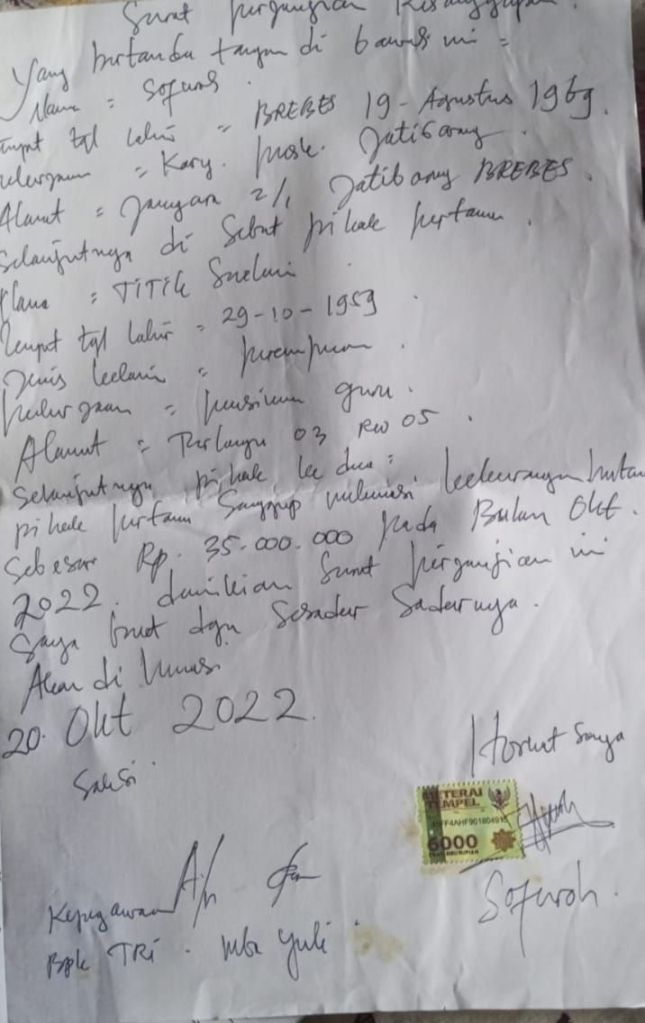 Surat perjanjian Kesanggupan.
Yang bertanda tangan di bawah ini =
Nama =
tempat tgl lahir = BREBES 19-Agustus 1969.
pekerjaan = Kary. pusk. Jatibarang.
Alamat = 2/1 Jatibarang BREBES.
Selanjutnya di Sebut pihak pertama.
Nama = TITIK Suelani
tempat tgl lahir = 29-10-1959
Jenis kelamin = perempuan.
pekerjaan = pensiunan guru.
Alamat = 03 RW 05.
Selanjutnya pihak ke dua =
pihak pertama Sanggup melunasi kekurangan hutan
Sebesar Rp. 35.000.000 pada Bulan Okt.
2022. demikian Surat perjanjian ini
Saya buat dgn Sesadar Sadarnya.
Akan di lunasi
20. Okt 2022.
Saksi.
Hormat Saya
METERAI
TEMPEL
6000
Sofuroh.
Kepegawaian
Bpk TRI. mba Yuli